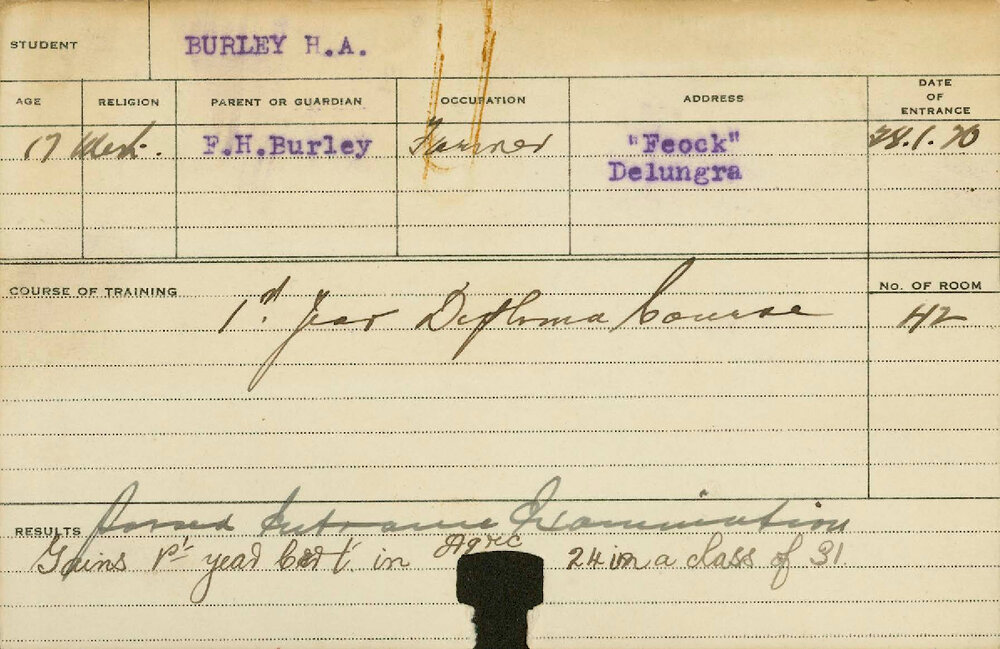 STUDENT BURLEY H.A.
AGE RELIGION PARENT OR GUARDIAN OCCUPATION ADDRESS DATE OF ENTRANCE
17 Meth. F.H.Burley Farmer "Feock" 28.1.20
Delungra
COURSE OF TRAINING No. OF ROOM
1st. Year Diploma Course 42
RESULTS Passed Entrance Examination
Gains 1st year Cert. in Agric 24 in a class of 31.